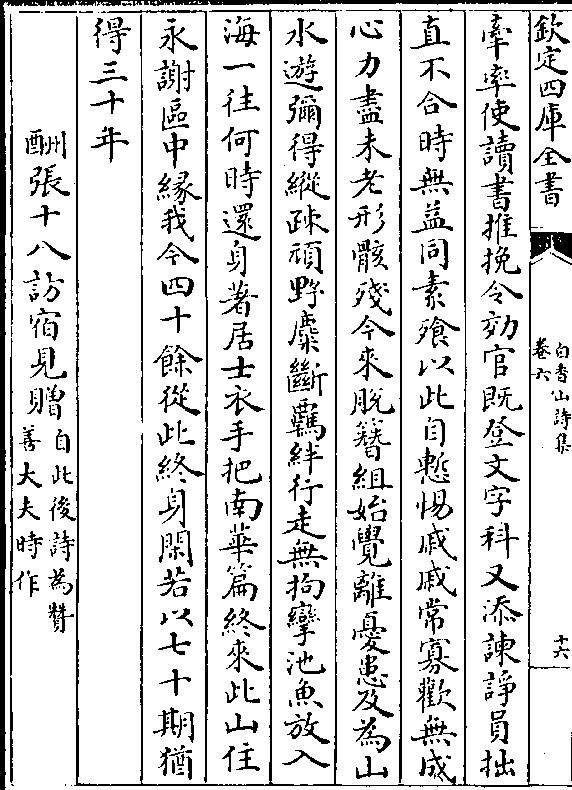 欽定四庫全書
白香山詩集
卷六
十六
牽率使讀書推挽令効官既登文字科又添諫諍員拙
直不合時無益同素飱以此自慙惕戚戚常寡歡無成
心力盡未老形骸殘今來脫簪組始覺離憂患及為山
水遊彌得縱疎頑野麋斷羈絆行走無拘攣池魚放入
海一往何時還身著居士衣手把南華篇終來此山住
永謝區中緣我今四十餘從此終身閑若以七十期猶
得三十年
酬張十八訪宿見贈自此後詩為贊
善大夫時作